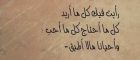 رأيت فيك كل ما أريد
كل ما أحتاج كل ما أحب ؛
وأحيانا مالا أطيق -